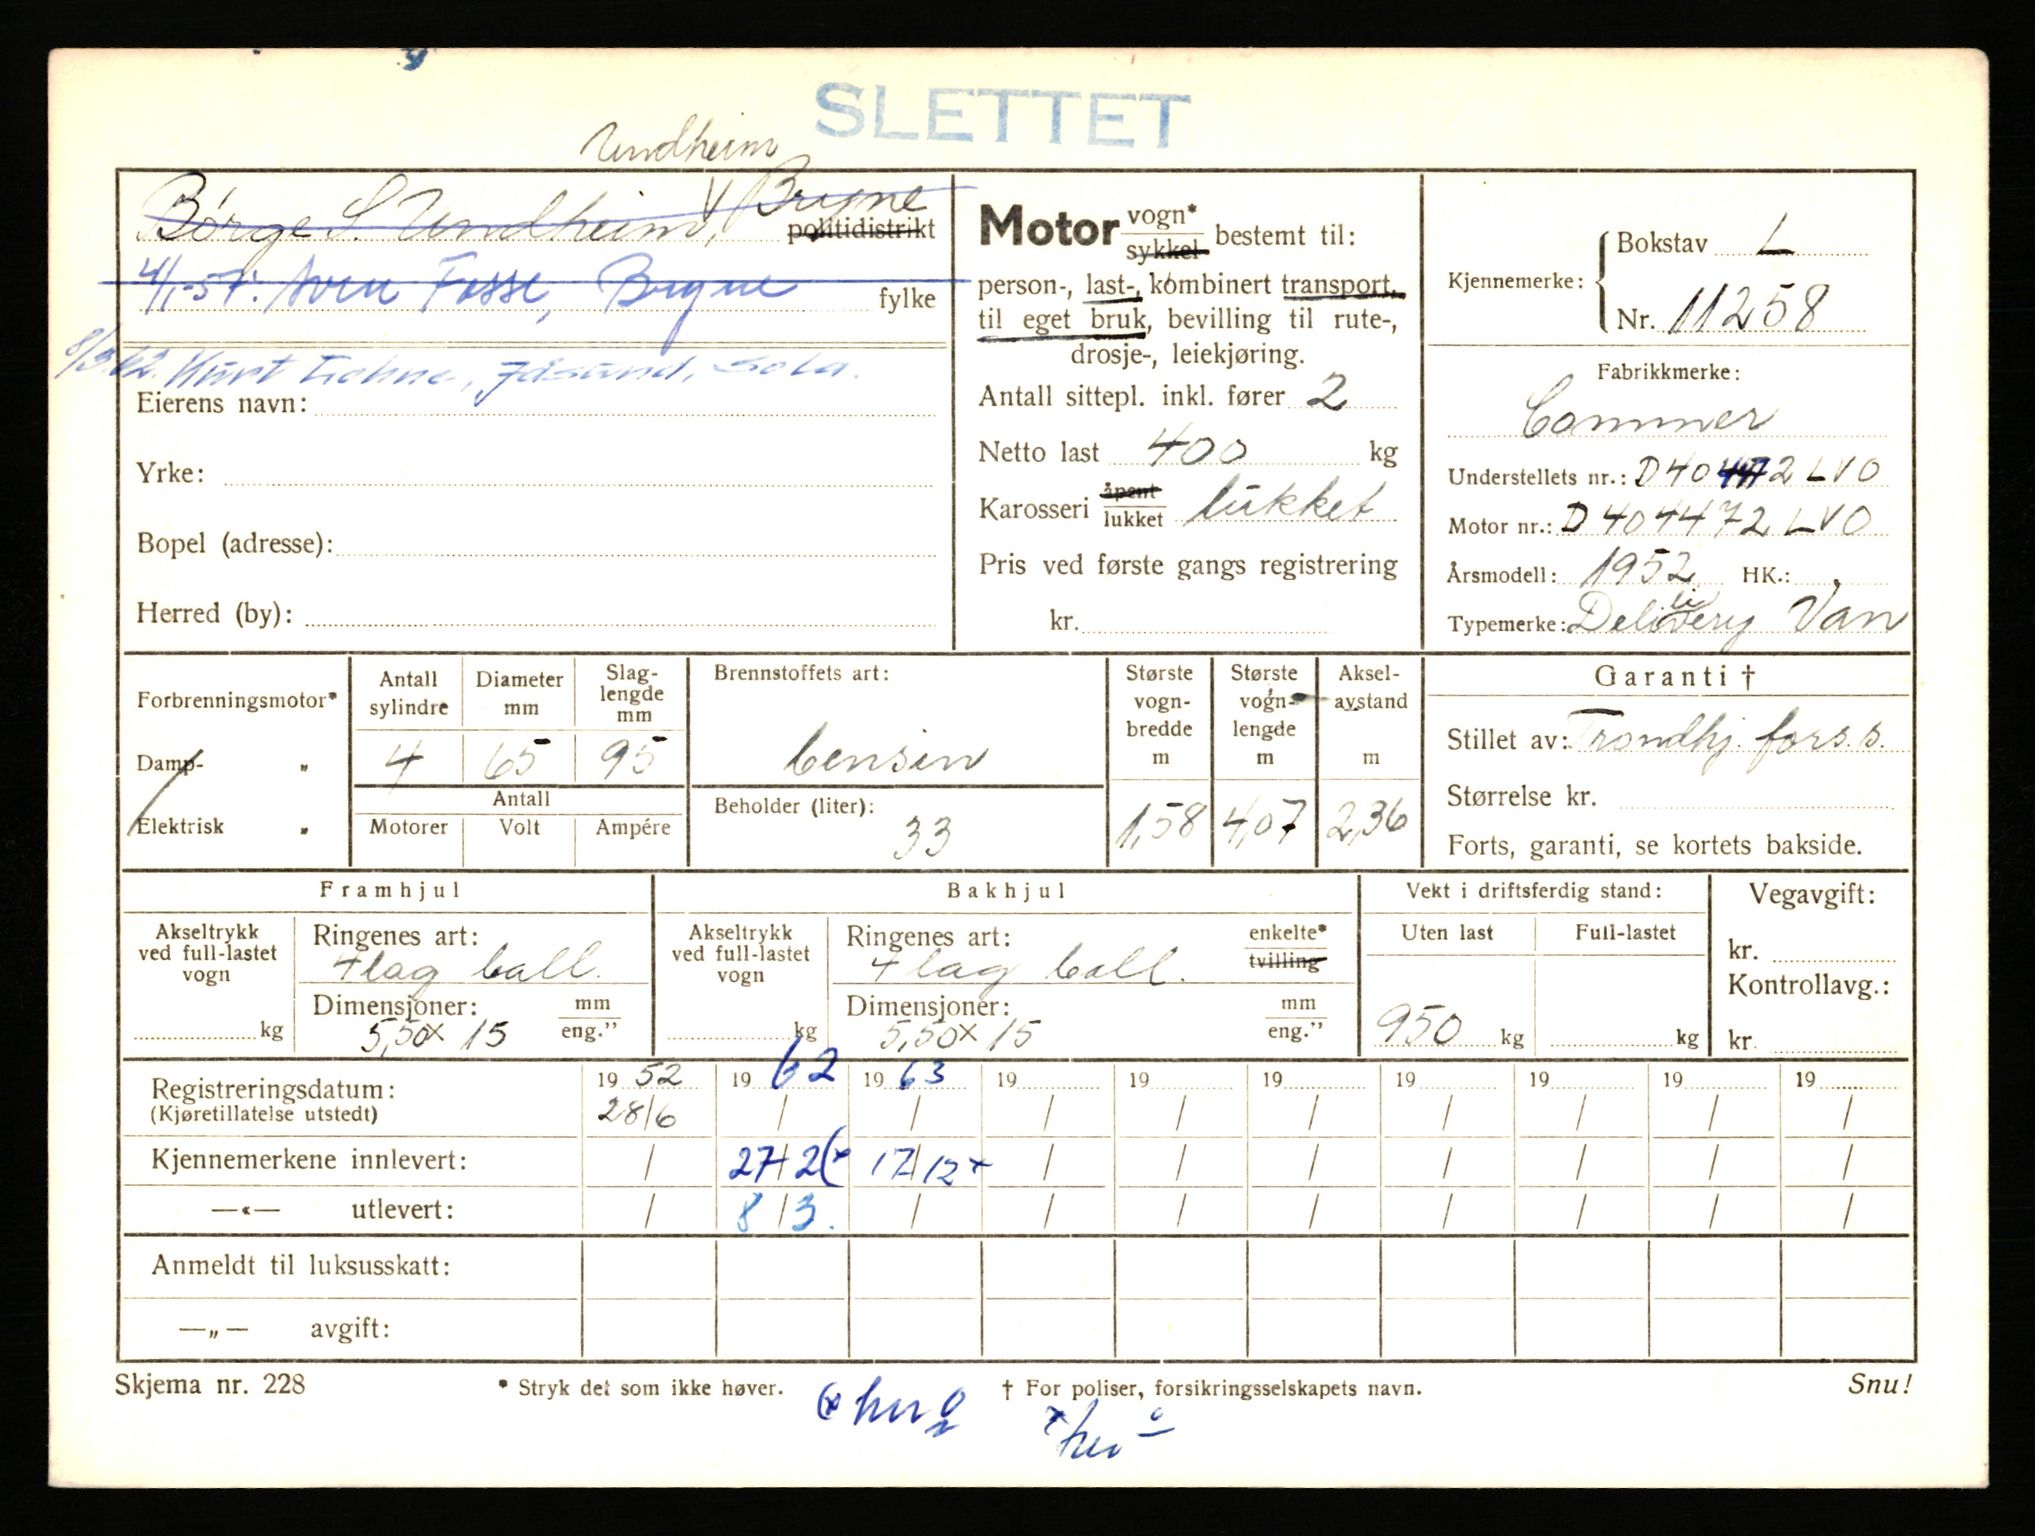 SLETTET
Undheim
Børge S. Undheim, V Bryne
politidistrikt
4/1-57. Sven Fosse, Bryne
fylke
8/3.62. Kurt Jåsund, Sola.
Eierens navn:
Yrke:
Bopel (adresse):
Herred (by):
Motor vogn* sykkel bestemt til:
person-, last-, kombinert transport,
til eget bruk, bevilling til rute-,
drosje-, leiekjøring.
Antall sittepl. inkl. fører 2
Netto last 400 kg
Karosseri åpent lukket lukket
Pris ved første gangs registrering
kr.
Kjennemerke: Bokstav L
Nr. 11258
Fabrikkmerke:
Commer
Understellets nr.: D404472LVO
Motor nr.: D404472LVO
Årsmodell: 1952 HK.:
Typemerke: Delivery Van
Forbrenningsmotor*
Damp- „
Elektrisk „
Antall sylindre
Diameter mm
Slag-lengde mm
4 65 95
Antall
Motorer Volt Ampére
Brennstoffets art:
bensin
Beholder (liter):
33
Største vogn-bredde m
Største vogn-lengde m
Aksel-avstand m
1,58 4,07 2,36
Garanti †
Stillet av: Trondhj. fors.s.
Størrelse kr.
Forts, garanti, se kortets bakside.
Framhjul
Akseltrykk ved full-lastet vogn
kg
Ringenes art:
4 lag ball.
Dimensjoner: mm
5,50x15 eng.”
Bakhjul
Akseltrykk ved full-lastet vogn
kg
Ringenes art: enkelte*
4 lag ball. tvilling
Dimensjoner: mm
5,50x15 eng.”
Vekt i driftsferdig stand:
Uten last Full-lastet
950 kg kg
Vegavgift:
kr.
Kontrollavg.:
kr.
Registreringsdatum: 19 52 19 62 19 63 19 19 19 19 19 19 19
(Kjøretillatelse utstedt) 28/6 / / / / / / / / /
Kjennemerkene innlevert: / 27/2(x 17/12x / / / / / / /
—«— utlevert: / 8/3. / / / / / / / /
Anmeldt til luksusskatt:
—„— avgift:
Skjema nr. 228
* Stryk det som ikke høver.
† For poliser, forsikringsselskapets navn.
Snu!